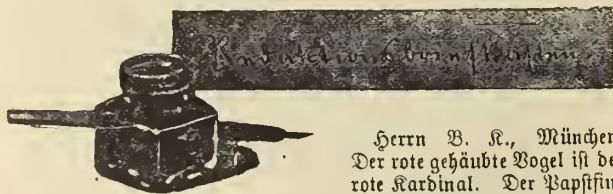 Redaktionsbriefkasten
Herrn B. K., München
Der rote gehäubte Vogel ist de
rote Kardinal. Der Papstfin